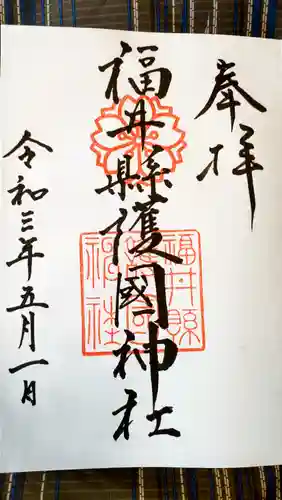 奉拝
福井縣護國神社
福井縣護國神社
令和三年五月一日